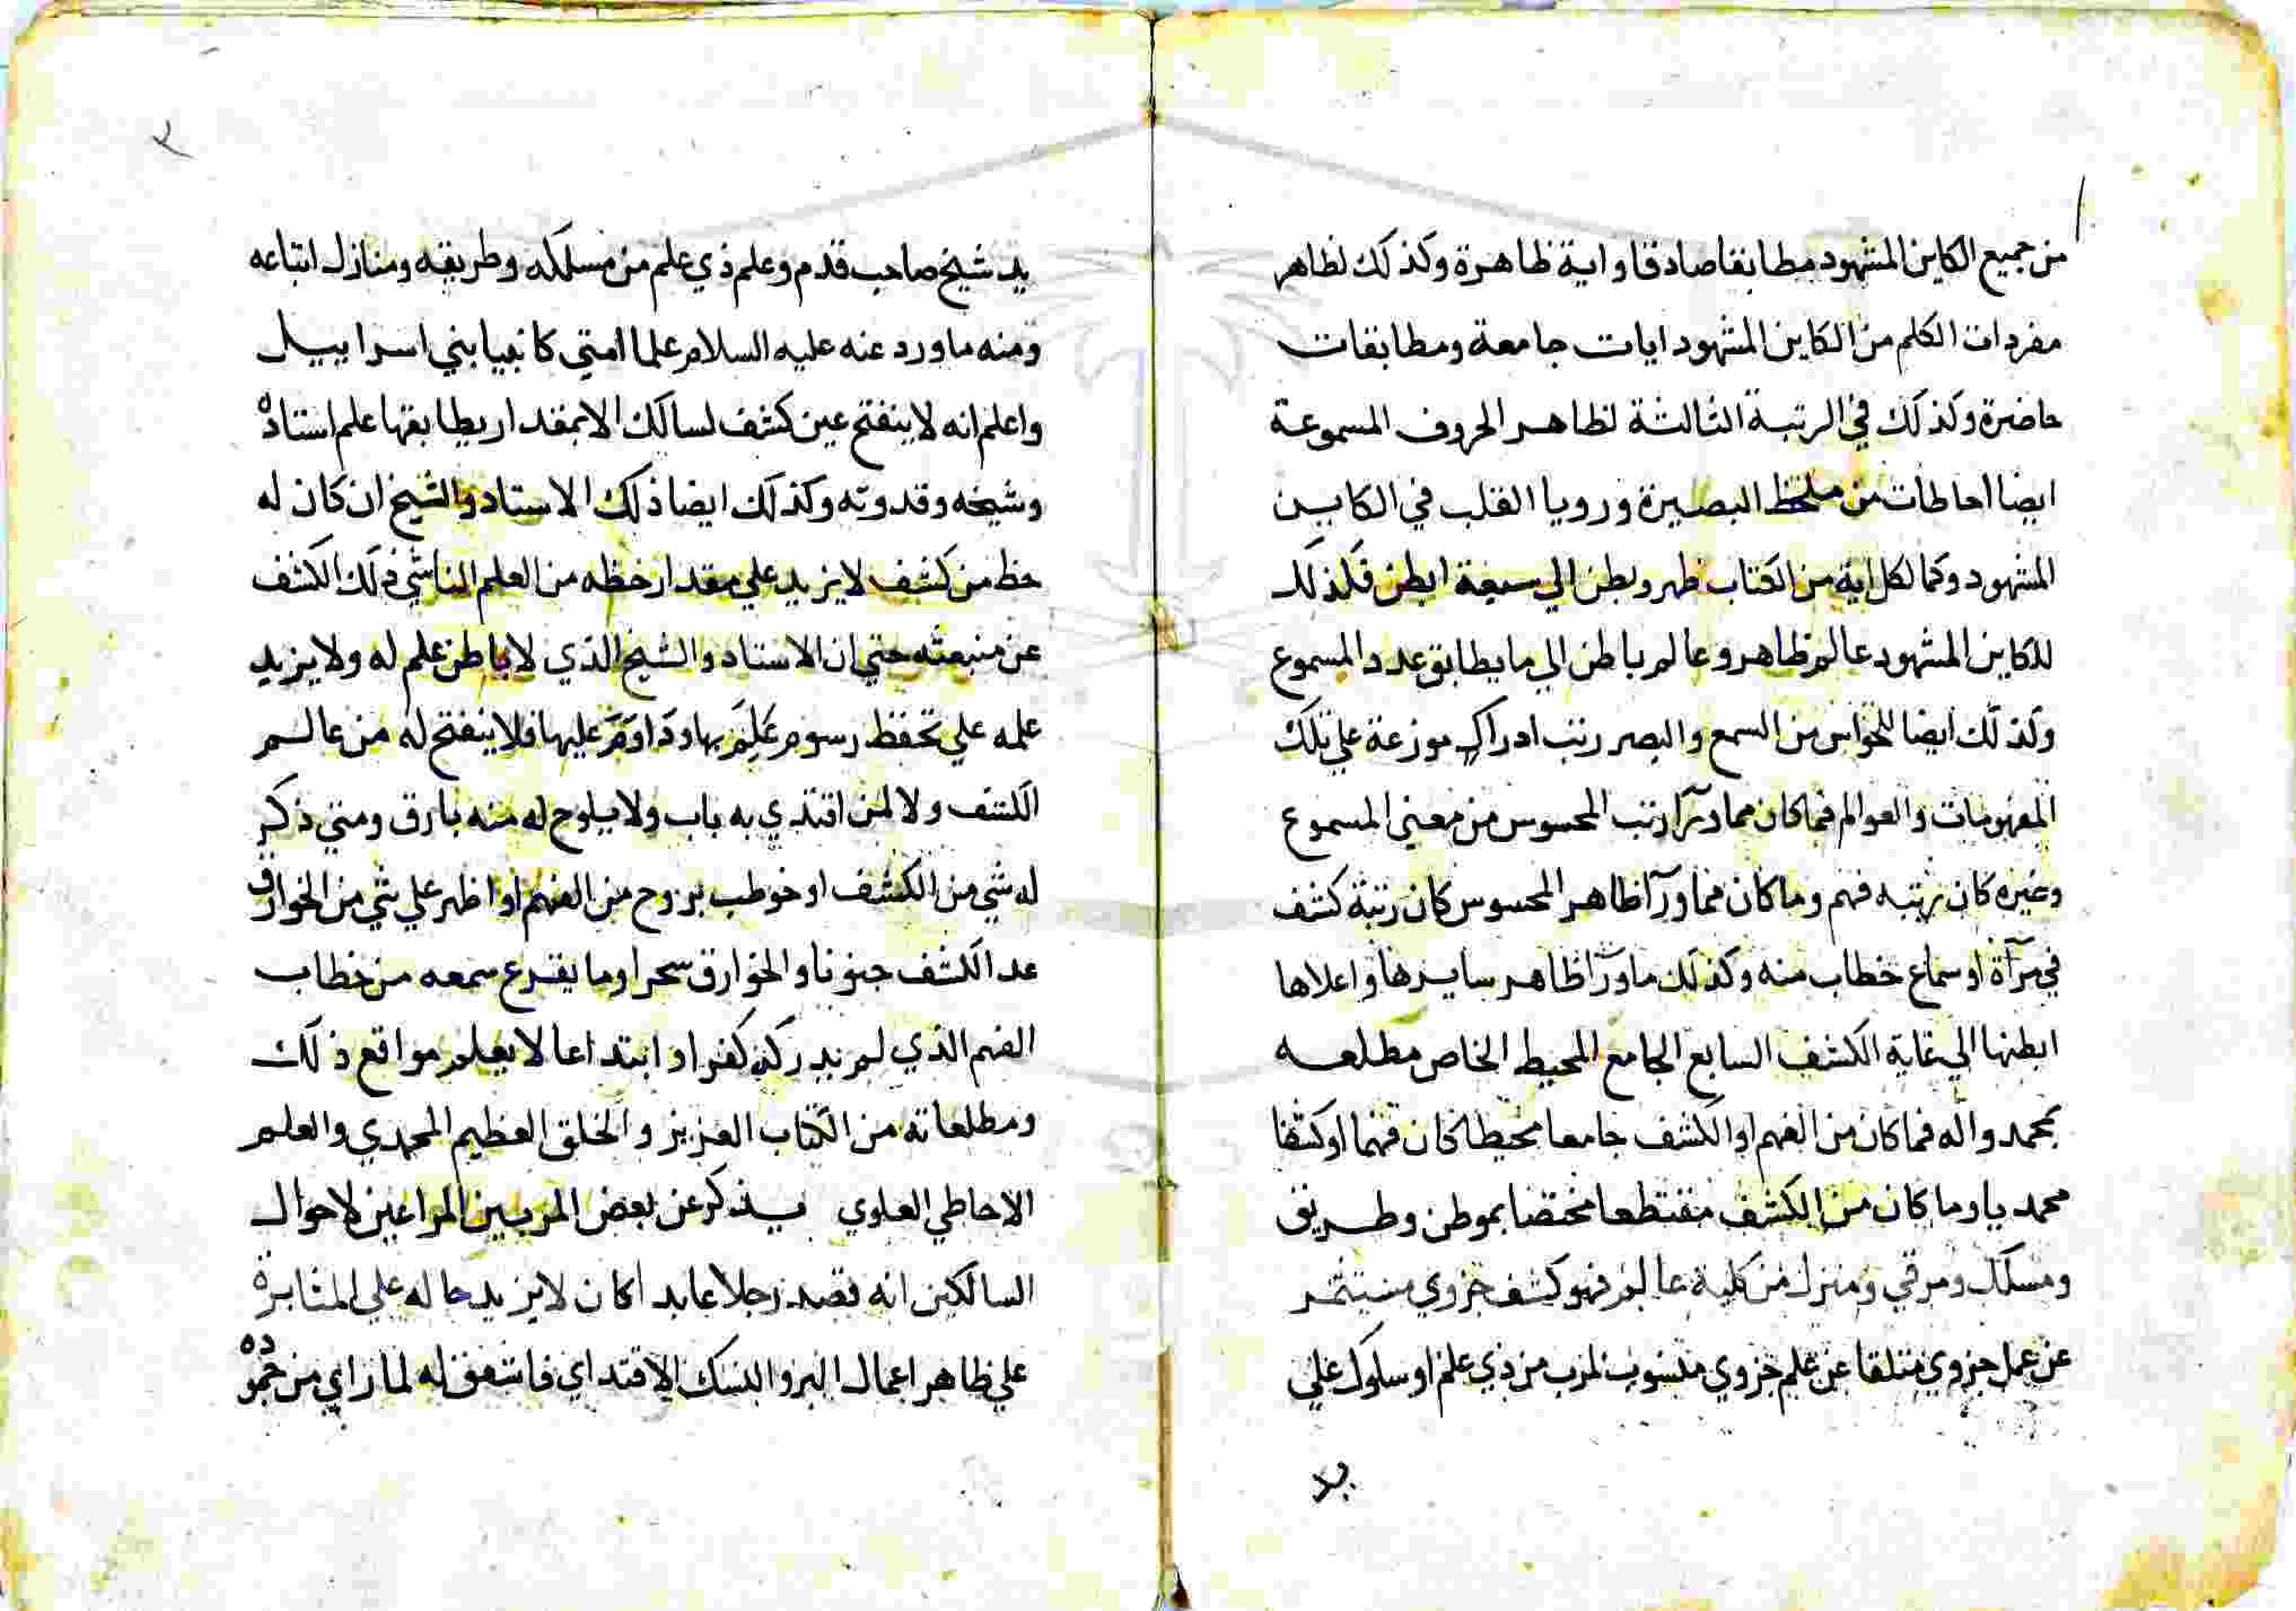 من جميع الكاين المشهود مطابقا صادقا واية ظاهرة وكذلك لظاهر
مفردات الكلم من الكاين المشهود ايات جامعة ومطابقات
حاضرة وكذلك في الرتبة الثالثة لظاهر الحروف المسموعة
ايضا احاطات من ملحظ البصيرة ورويا القلب في الكاين
المشهود وكما لكل اية من الكتاب ظهر وبطن الي سبعة ابطن فكذلك
للكاين المشهود عالم ظاهر وعالم باطن الي ما يطابق عدد المسموع
وكذلك ايضا للحواس من السمع والبصر رتب ادراك موزعة علي تلك
المفهومات والعوالم فما كان مما ورآ رتب المحسوس من معني المسموع
وغيره كان رتبه فهم وما كان مما ورآ ظاهر المحسوس كان رتبة كشف
في مرآة او سماع خطاب منه وكذلك ما ورآ ظاهر سايرها واعلاها
ابطنها الي غاية الكشف السابع الجامع المحيط الخاص مطلعه
بمحمد واله فما كان من الفهم او الكشف جامعا محيطا كان فهما او كشفا
محمديا وما كان من الكشف مقتطعا مختصا بموطن وطريق
ومسلك ومرقي ومنزل من كلية عالم فهو كشف جزوي مستثمر
عن عمل جزوي متلقا عن علم جزوي منسوب لمرب من ذي علم او سلوك علي
يد
٢
يد شيخ صاحب قدم وعلم ذي علم من مسلكه وطريقه ومنازل اتباعه
ومنه ما ورد عنه عليه السلام علما امتي كانبيا بني اسراييل
واعلم انه لا ينفتح عين كشف لسالك الا بمقدار يطابقها علم استاذه
وشيخه وقدوته وكذلك ايضا ذلك الاستاد والشيخ ان كان له
حظ من كشف لا يزيد علي مقدار حظه من العلم الناشي ذلك الكشف
عن منبعثه حتي ان الاستاد والشيخ الذي لا باطن علم له ولا يزيد
علمه علي تحفظ رسوم عَلِمَ بها ودَاوَمَ عليها فلا ينفتح له من عالم
الكشف ولا لمن اقتدي به باب ولا يلوح له منه بارق ومتي ذكر
له شي من الكشف او خوطب بروح من الفهم او اظهر علي شي من الخوارق
عد الكشف جنونا والخوارق سحرا وما يقرع سمعه من خطاب
الفهم الذي لم يدركه كفرا وابتداعا لا يعلم مواقع ذلك
ومطلعاته من الكتاب العزيز والخلق العظيم المحمدي والعلم
الاحاطي العلوي يذكر عن بعض المربين المراعين لاحوال
السالكين انه قصد رجلا عابدا كان لا يزيد حاله علي المثابرة
علي ظاهر اعمال البر والنسك الاقتداي فاشفق له لما راي من جموده